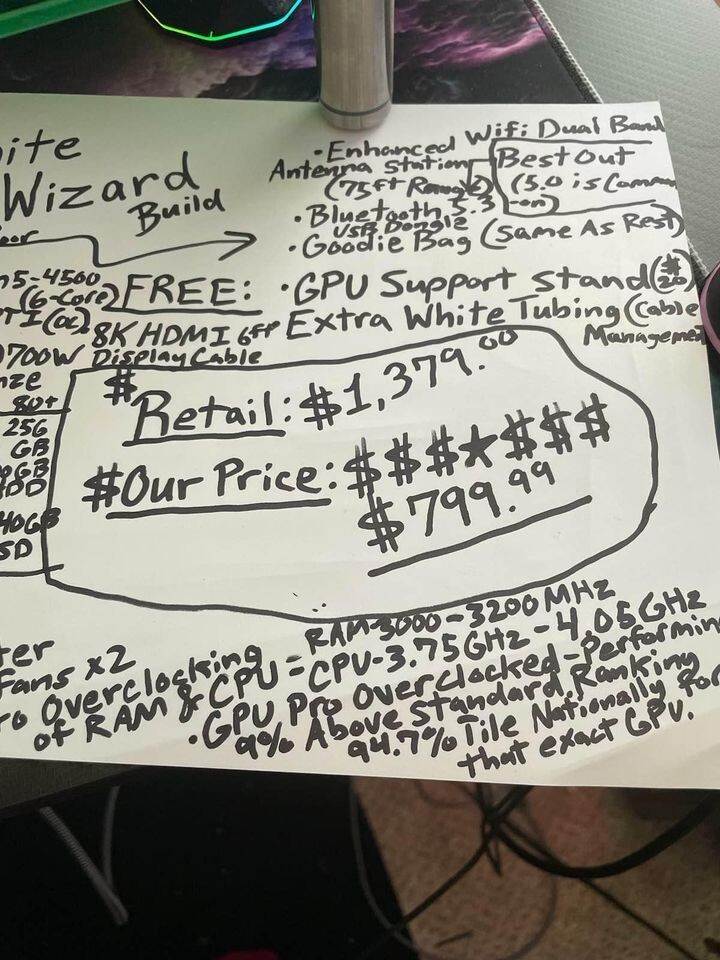 ite
Wizard
Build
oor
• Enhanced Wifi Dual Band
Antenna Station
(75ft Range)
Best Out
(5.0 is Comm
-on)
• Bluetooth 5.3
USB Dongle
• Goodie Bag (Same As Rest)
n5-4500
(6-Core)
TI (OC)
700W
nze
80+
256
GB
0GB
DD
40GB
SD
FREE:
• GPU Support Stand ($20)
8K HDMI 6ft
Display Cable
Extra White Tubing (Cable
Management
$
Retail: $1,379.00
$Our Price: $$$★$$$
$799.99
ter
Fans x2
ro Overclocking
of RAM & CPU = CPU-3.75GHz-4.05GHz
RAM-3000-3200MHz
• GPU Pro Overclocked-Performin
9% Above Standard. Ranking
94.7%Tile Nationally for
that exact GPU.